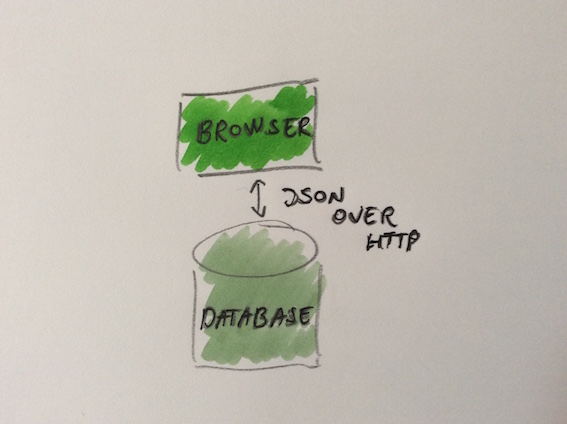 BROWSER
JSON
OVER
HTTP
DATABASE